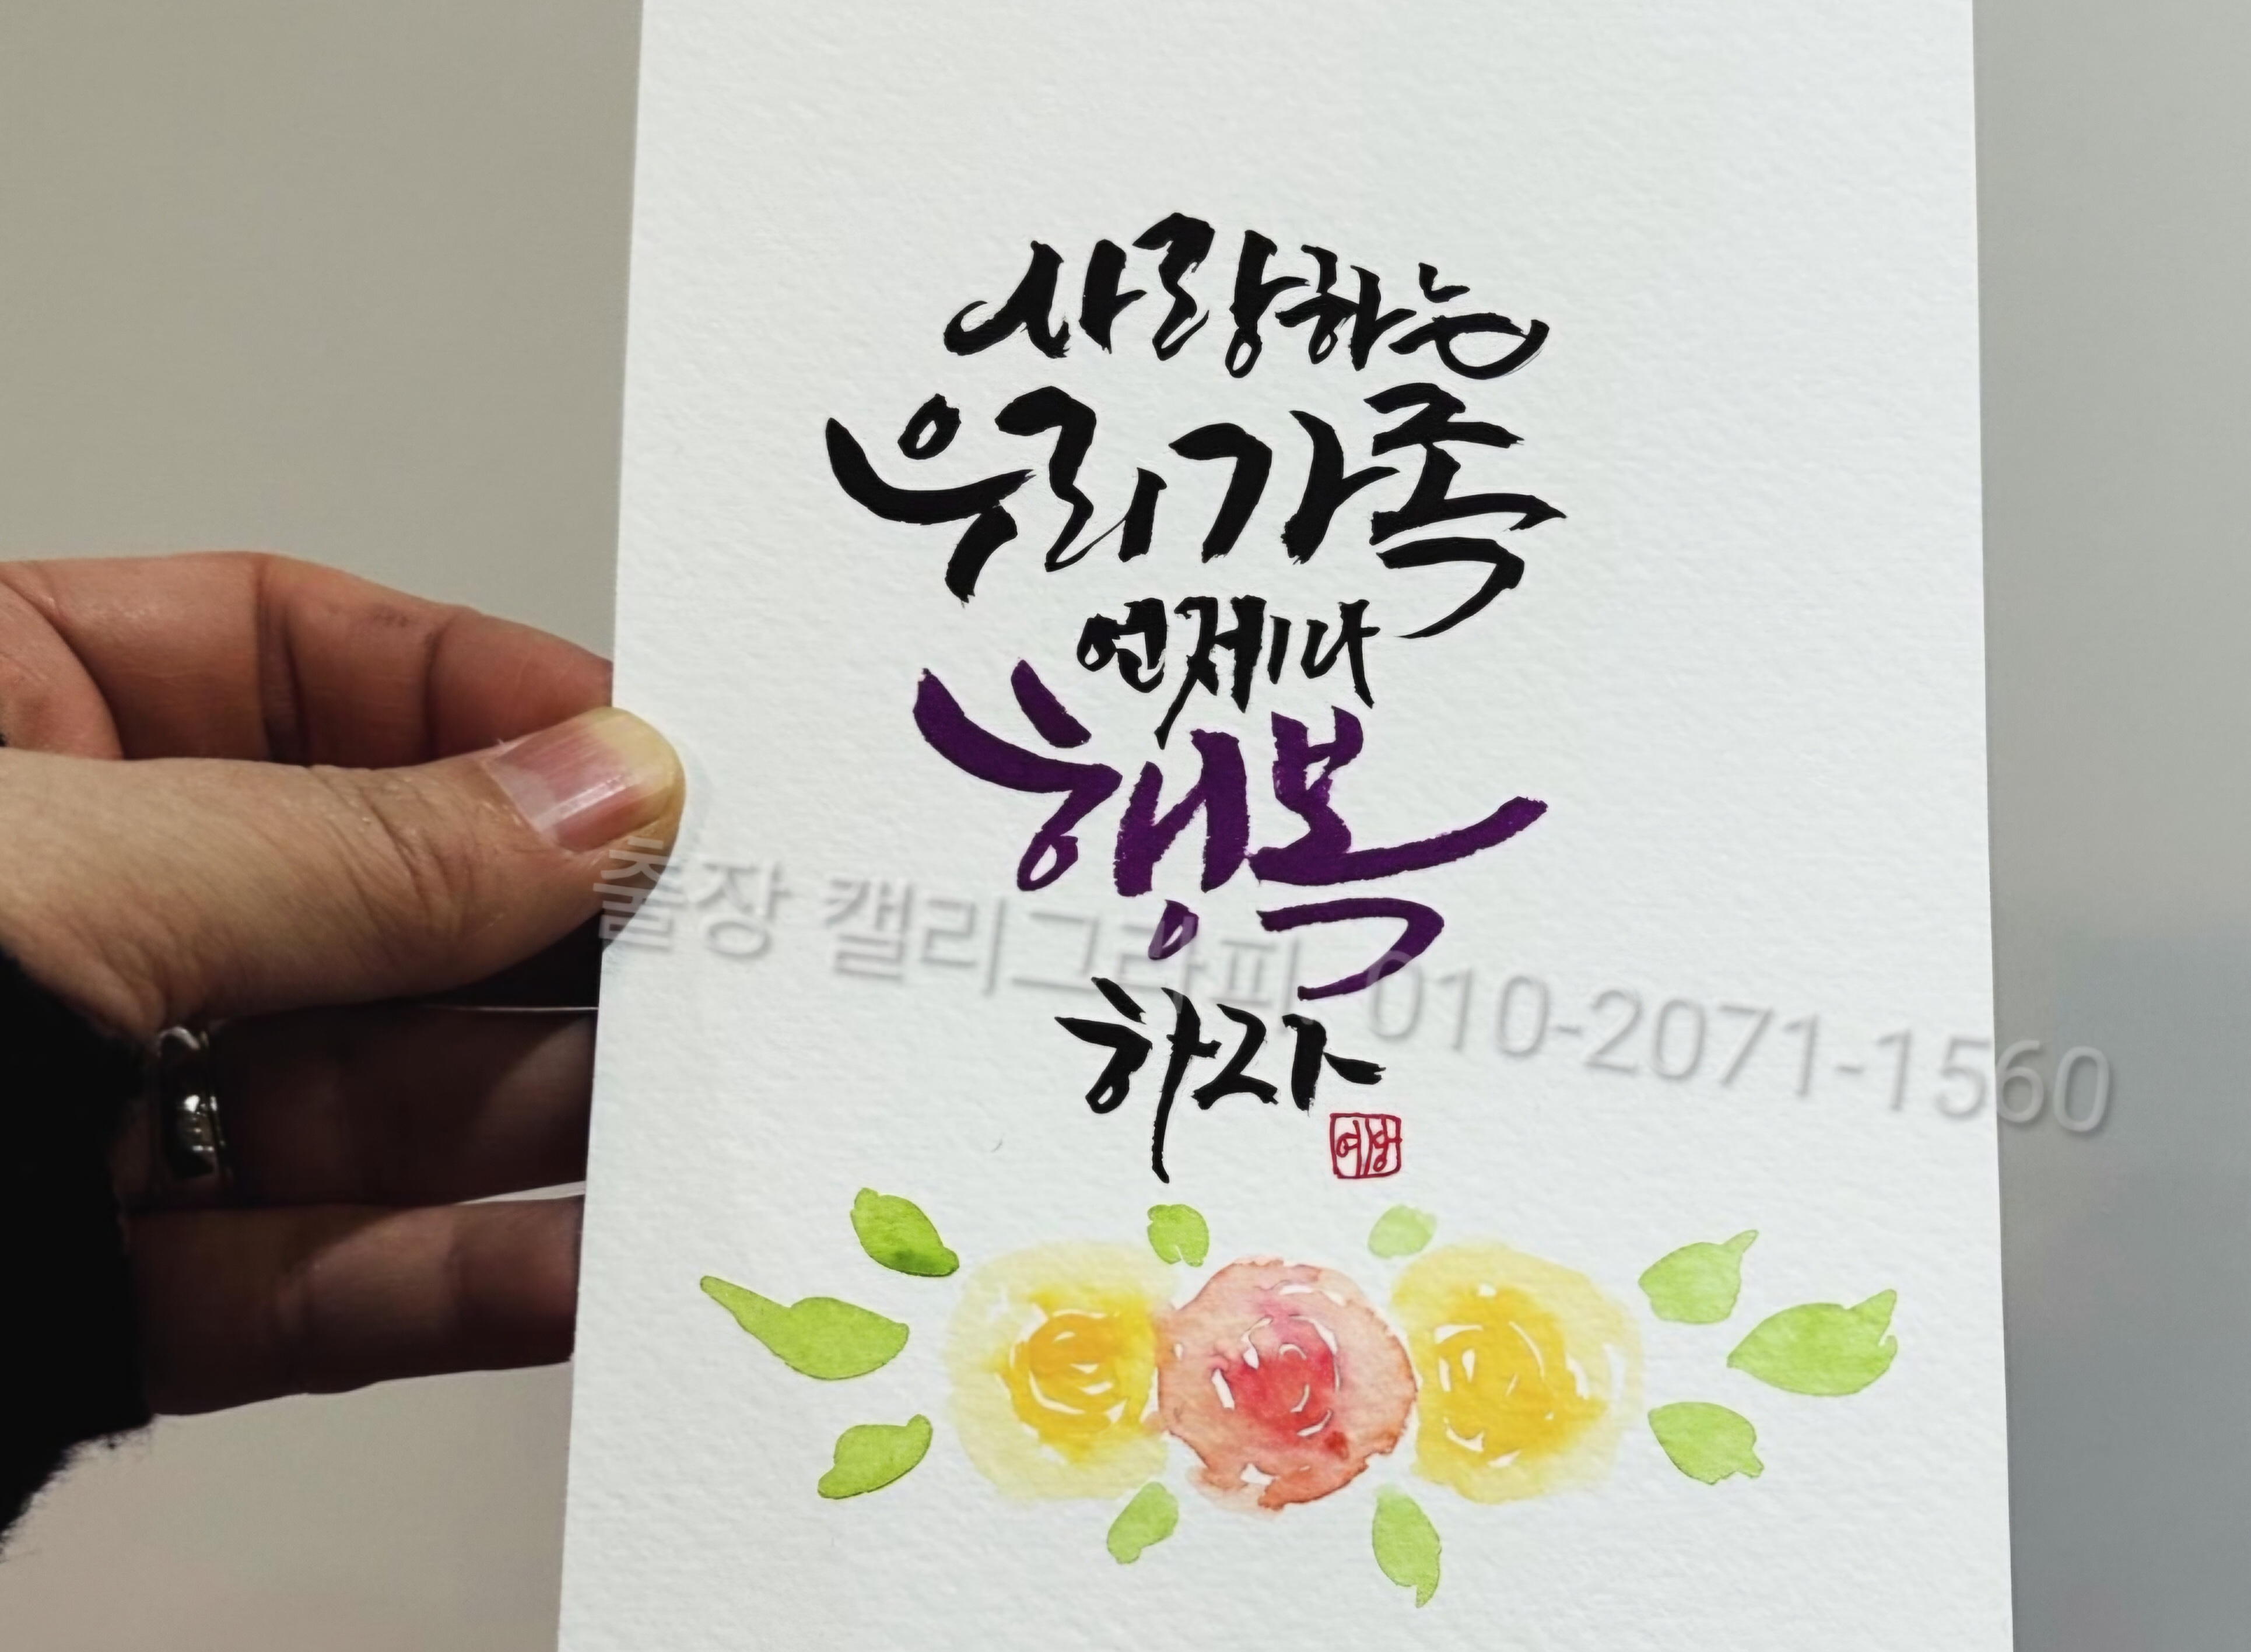 사랑하는
우리가족
언제나
행복
하라
출장 캘리그라피 010-2071-1560